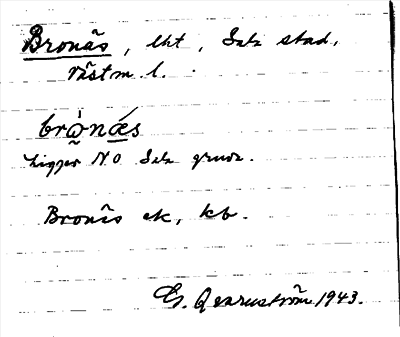 Bronäs, lht, Sala stad,
Västm. l.
brὼnǽs
Ligger NO Sala gruva.
Bronäs ek, kb.
G. Qvarnström 1943.